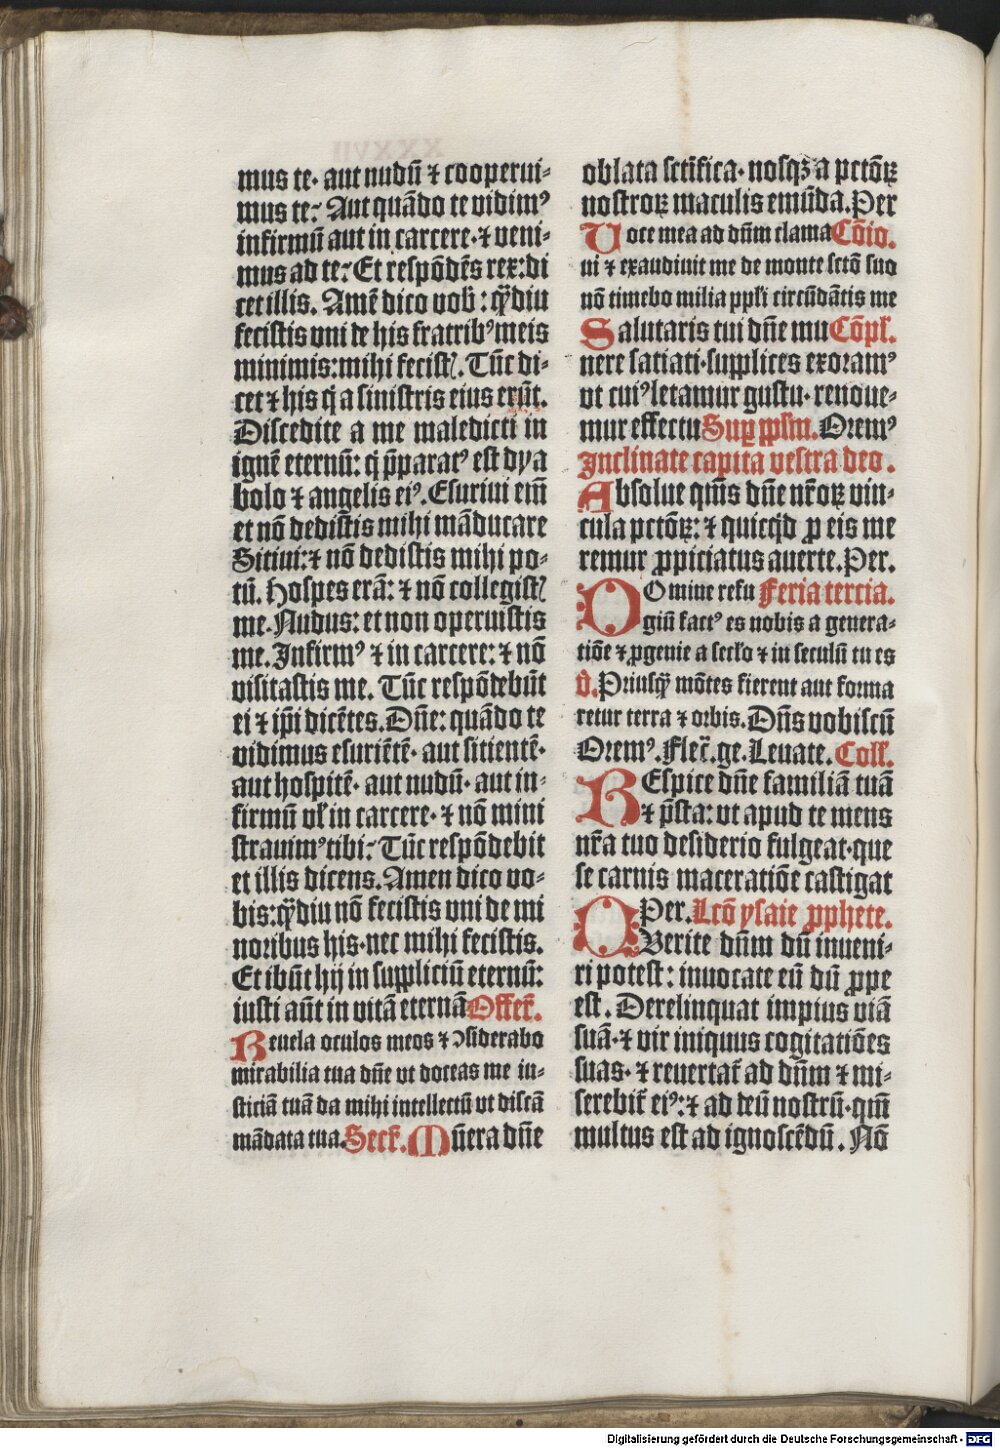 mus te· aut nudū ⁊ cooperui⸗
mus te? Aut quādo te vidimꝰ
infirmū aut in carcere·⁊ veni⸗
mus ad te? Et respōdēs rex: di
cet illis. Amē dico vob̄: qͣdiu
fecistis vni de his fratribꝰ meis
minimis: mihi fecistꝭ. Tūc di⸗
cet ⁊ his q̇ a sinistris eius erūt.
Discedite a me maledicti in
ignē eternū: q̇ p̄paratꝰ est dya
bolo ⁊ angelis eiꝰ. Esuriui em̄
et nō dedistis mihi māducare
Sitiui: ⁊ nō dedistis mihi po⸗
tū. Hospes erā: ⁊ nō collegistꝭ
me. Nudus: et non operuistis
me. Infirmꝰ ⁊ in carcere: ⁊ nō
visitastis me. Tūc respōdebūt
ei ⁊ ip̄i dicētes. Dn̄e: quādo te
vidimus esuriētē· aut sitientē·
aut hospitē· aut nudū· aut in⸗
firmū vł in carcere· ⁊ nō mini
strauimꝰ tibi? Tūc respōdebit
et illis dicens. Amen dico vo⸗
bis: qͣdiu nō fecistis vni de mi
noribus his· nec mihi fecistis.
Et ibūt hij in suppliciū eternū:
iusti aūt in vitā eternā Offer̄.
Reuela oculos meos ⁊ ꝯsiderabo
mirabilia tua dn̄e vt doceas me iu⸗
sticiā tuā da mihi intellectū vt discā
mādata tua. Secr̄. Mūera dn̄e
oblata sctīfica· nosqꝫ a pctōꝝ
nostroꝝ maculis emūda. Per
Uoce mea ad dn̄m clama Cōio.
ui ⁊ exaudiuit me de monte sctō suo
nō timebo milia ppl̄i circūdātis me
Salutaris tui dn̄e mu Cōpl̄.
nere satiati· supplices exoramꝰ
vt cuiꝰ letamur gustu· renoue⸗
mur effectu Suꝑ pplm̄. Oremꝰ
Inclinate capita vestra deo.
Absolue qm̄s dn̄e nr̄oꝝ vin⸗
cula pctōꝝ: ⁊ quicq̇d ꝓ eis me
remur ꝓpiciatus auerte. Per.
DOmine refu Feria tercia.
giū factꝰ es nobis a genera⸗
tiōe ⁊ ꝓgenie a seclo ⁊ in seculū tu es
v̄. Priusqͣ mōtes fierent aut forma
retur terra ⁊ orbis. Dn̄s vobiscū
Oremꝰ. Flec̄. ge. Leuate. Coll̄.
REspice dn̄e familiā tuā
⁊ p̄sta: vt apud te mens
nr̄a tuo desiderio fulgeat· que
se carnis maceratiōe castigat
Per. Lcō ysaie ꝓphete.
QVerite dn̄m dū inueni⸗
ri potest: inuocate eū dū ꝓpe
est. Derelinquat impius viā
suā· ⁊ vir iniquus cogitatiōes
suas· ⁊ reuertat̄ ad dn̄m ⁊ mi⸗
serebit̄ eiꝰ: ⁊ ad deū nostrū· qm̄
multus est ad ignoscēdū. Nō
Digitalisierung gefördert durch die Deutsche Forschungsgemeinschaft - DFG